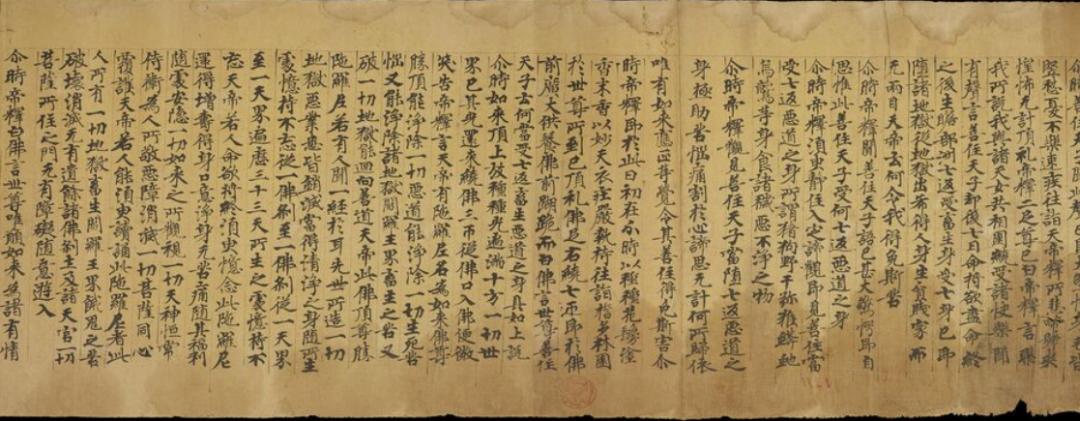 竪愁憂不樂速疾往詣天帝釋所悲啼號哭
惶怖无計頂礼帝釋二足尊已白帝釋言聽
我所說我與諸天女共相圍繞受諸快樂聞
有聲言善住天子却後七日命將欲盡命終
之後生贍部洲七返受畜生身受七身已即
隨諸地獄從地獄出希得人身生貧賤家而
无兩目天帝云何令我得免斯苦
尒時帝釋聞善住天子語已甚大驚愕即自
思惟此善住天子受何七返惡道之身
尒時帝釋須臾靜住入定諦觀即見善住當
受七返惡道之身所謂猪狗野干獼猴蟒虵
烏鷲等身食諸穢惡不淨之物
尒時帝釋觀見善住天子當墮七返惡道之
身極助苦惱痛割於心諦思无計何所歸依
唯有如來應正等覺令其善住得免斯苦尒
時帝釋即於此日初夜分時以種種花鬘塗
香末香以妙天衣莊嚴執持往詣誓多林園
於世尊所到已頂礼佛足右繞七帀即於佛
前廣大供養佛前胡跪而白佛言世尊善住
天子云何當受七返畜生惡道之身具如上說
尒時如來頂上放種種光遍滿十方一切世
界已其光還來繞佛三帀從佛口入佛便微
笑告帝釋言天帝有陁羅尼名為如來佛尊
勝頂能淨除一切惡道能淨除一切生死苦
惱又能淨除諸地獄閻羅王界畜生之苦又
破一切地獄能迴向善道天帝此佛頂尊勝
陁羅尼若有人聞一經於耳先世所造一切
地獄惡業悉皆銷滅當得清淨之身隨所生
處憶持不忘從一佛剎至一佛剎從一天界
至一天界遍歷三十三天所生之處憶持不
忘天帝若人命欲將終須臾憶念此陁羅尼
還得增壽得身口意淨身无苦痛隨其福利
隨處安隱一切如來之所觀視一切天神恒常
侍衛為人所敬惡障消滅一切菩薩同心
覆護天帝若人能須臾讀誦此陁羅尼者此
人所有一切地獄畜生閻羅王界餓鬼之苦
破壞消滅无有遺餘諸佛剎土及諸天宮一切
菩薩所住之門无有障礙隨意遊入
尒時帝釋白佛言世尊唯願如來為諸有情